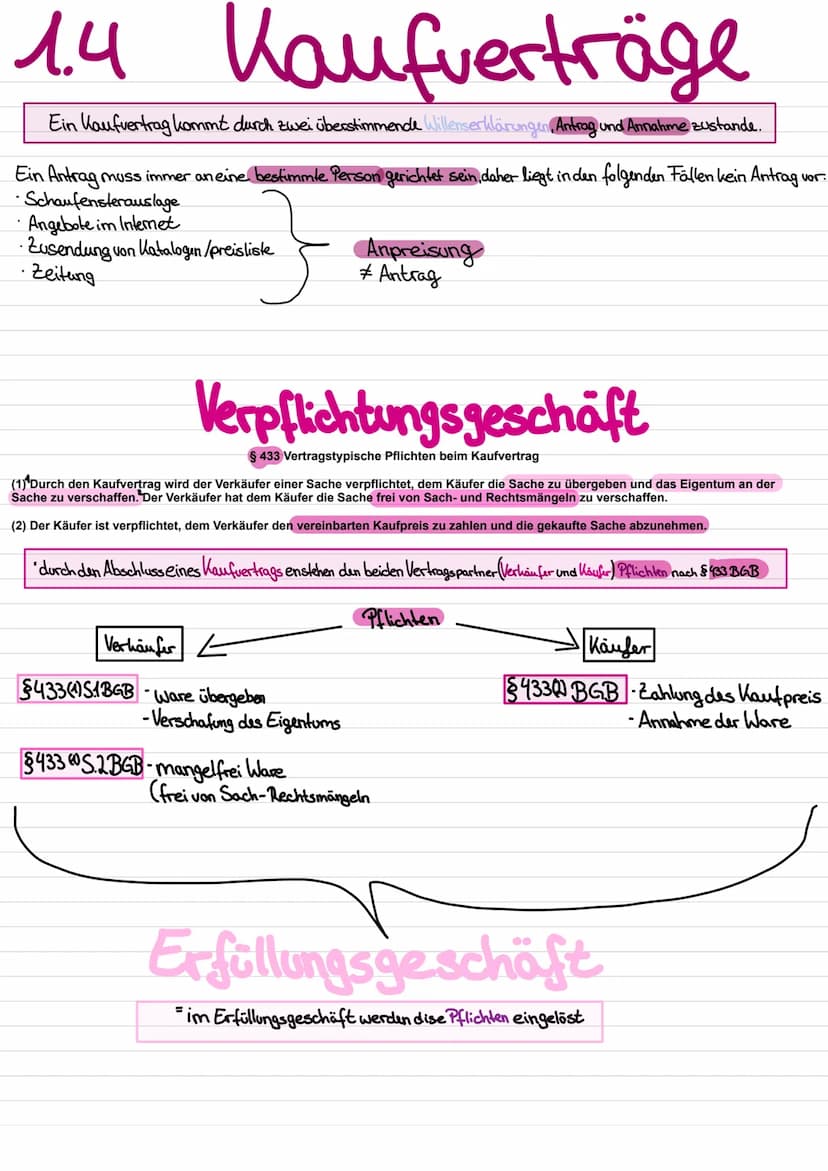 1.4 Kaufverträge
Ein Kaufvertrag kommt durch zwei überstimmende Willenserklärungen, Antrag und Annahme zustande.
Ein Antrag muss immer an eine bestimmte Person gerichtet sein, daher liegt in den folgenden Fällen kein Antrag vor:
· Schaufensterauslage
· Angebote im Internet
· Zusendung von Katalogen/preisliste
· Zeitung
Anpreisung
≠ Antrag
Verpflichtungsgeschäft
§ 433 Vertragstypische Pflichten beim Kaufvertrag
(1) ¹Durch den Kaufvertrag wird der Verkäufer einer Sache verpflichtet, dem Käufer die Sache zu übergeben und das Eigentum an der
Sache zu verschaffen. ²Der Verkäufer hat dem Käufer die Sache frei von Sach- und Rechtsmängeln zu verschaffen.
(2) Der Käufer ist verpflichtet, dem Verkäufer den vereinbarten Kaufpreis zu zahlen und die gekaufte Sache abzunehmen.
· durch den Abschluss eines Kaufvertrags enstehen den beiden Vertragspartner (Verkäufer und Käufer) Pflichten nach § 433 BGB
Pflichten
Verkäufer
Käufer
§ 433 (1) S.1 BGB - Ware übergeben
- Verschafung des Eigentums
§ 433 (2) BGB - Zahlung des Kaufpreis
- Annahme der Ware
§ 433 (1) S.2 BGB - mangelfrei Ware
(frei von Sach-Rechtsmängeln
Erfüllungsgeschäft
= im Erfüllungsgeschäft werden dise Pflichten eingelöst